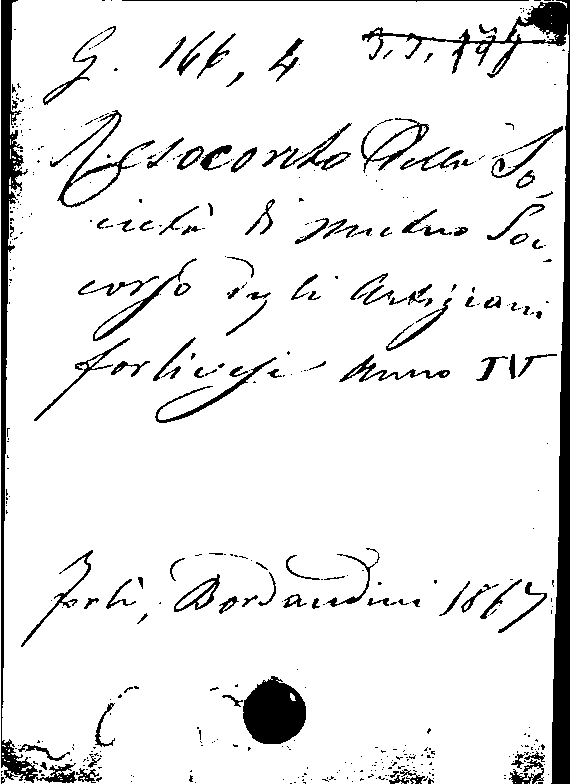 G. 166, 4
Resoconto Della So-
cietà di mutuo Soc-
corso degli Artigiani
forlivesi Anno IV
Forlì, Bordandini 1867